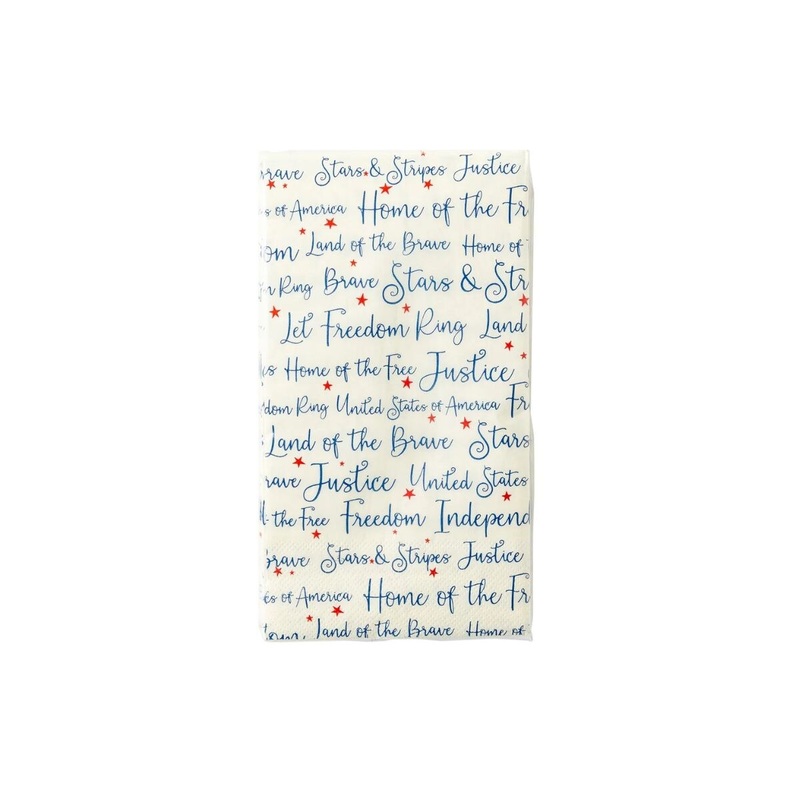 brave Stars & Stripes Justice
s of America Home of the Fr
om Land of the Brave Home of
m Ring Brave Stars & Str
Let Freedom Ring Land
es Home of the Free Justice
dom Ring United States of America Fr
Land of the Brave Stars
rave Justice United States
the Free Freedom Independ
Brave Stars & Stripes Justice
es of America Home of the Fr
dom Land of the Brave Home of